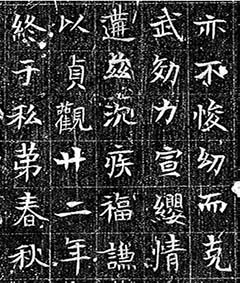 亦不悛幼而克
武効力宣纓情
遘茲沉疾福謙
以貞觀廿二年
終于私苐春秋